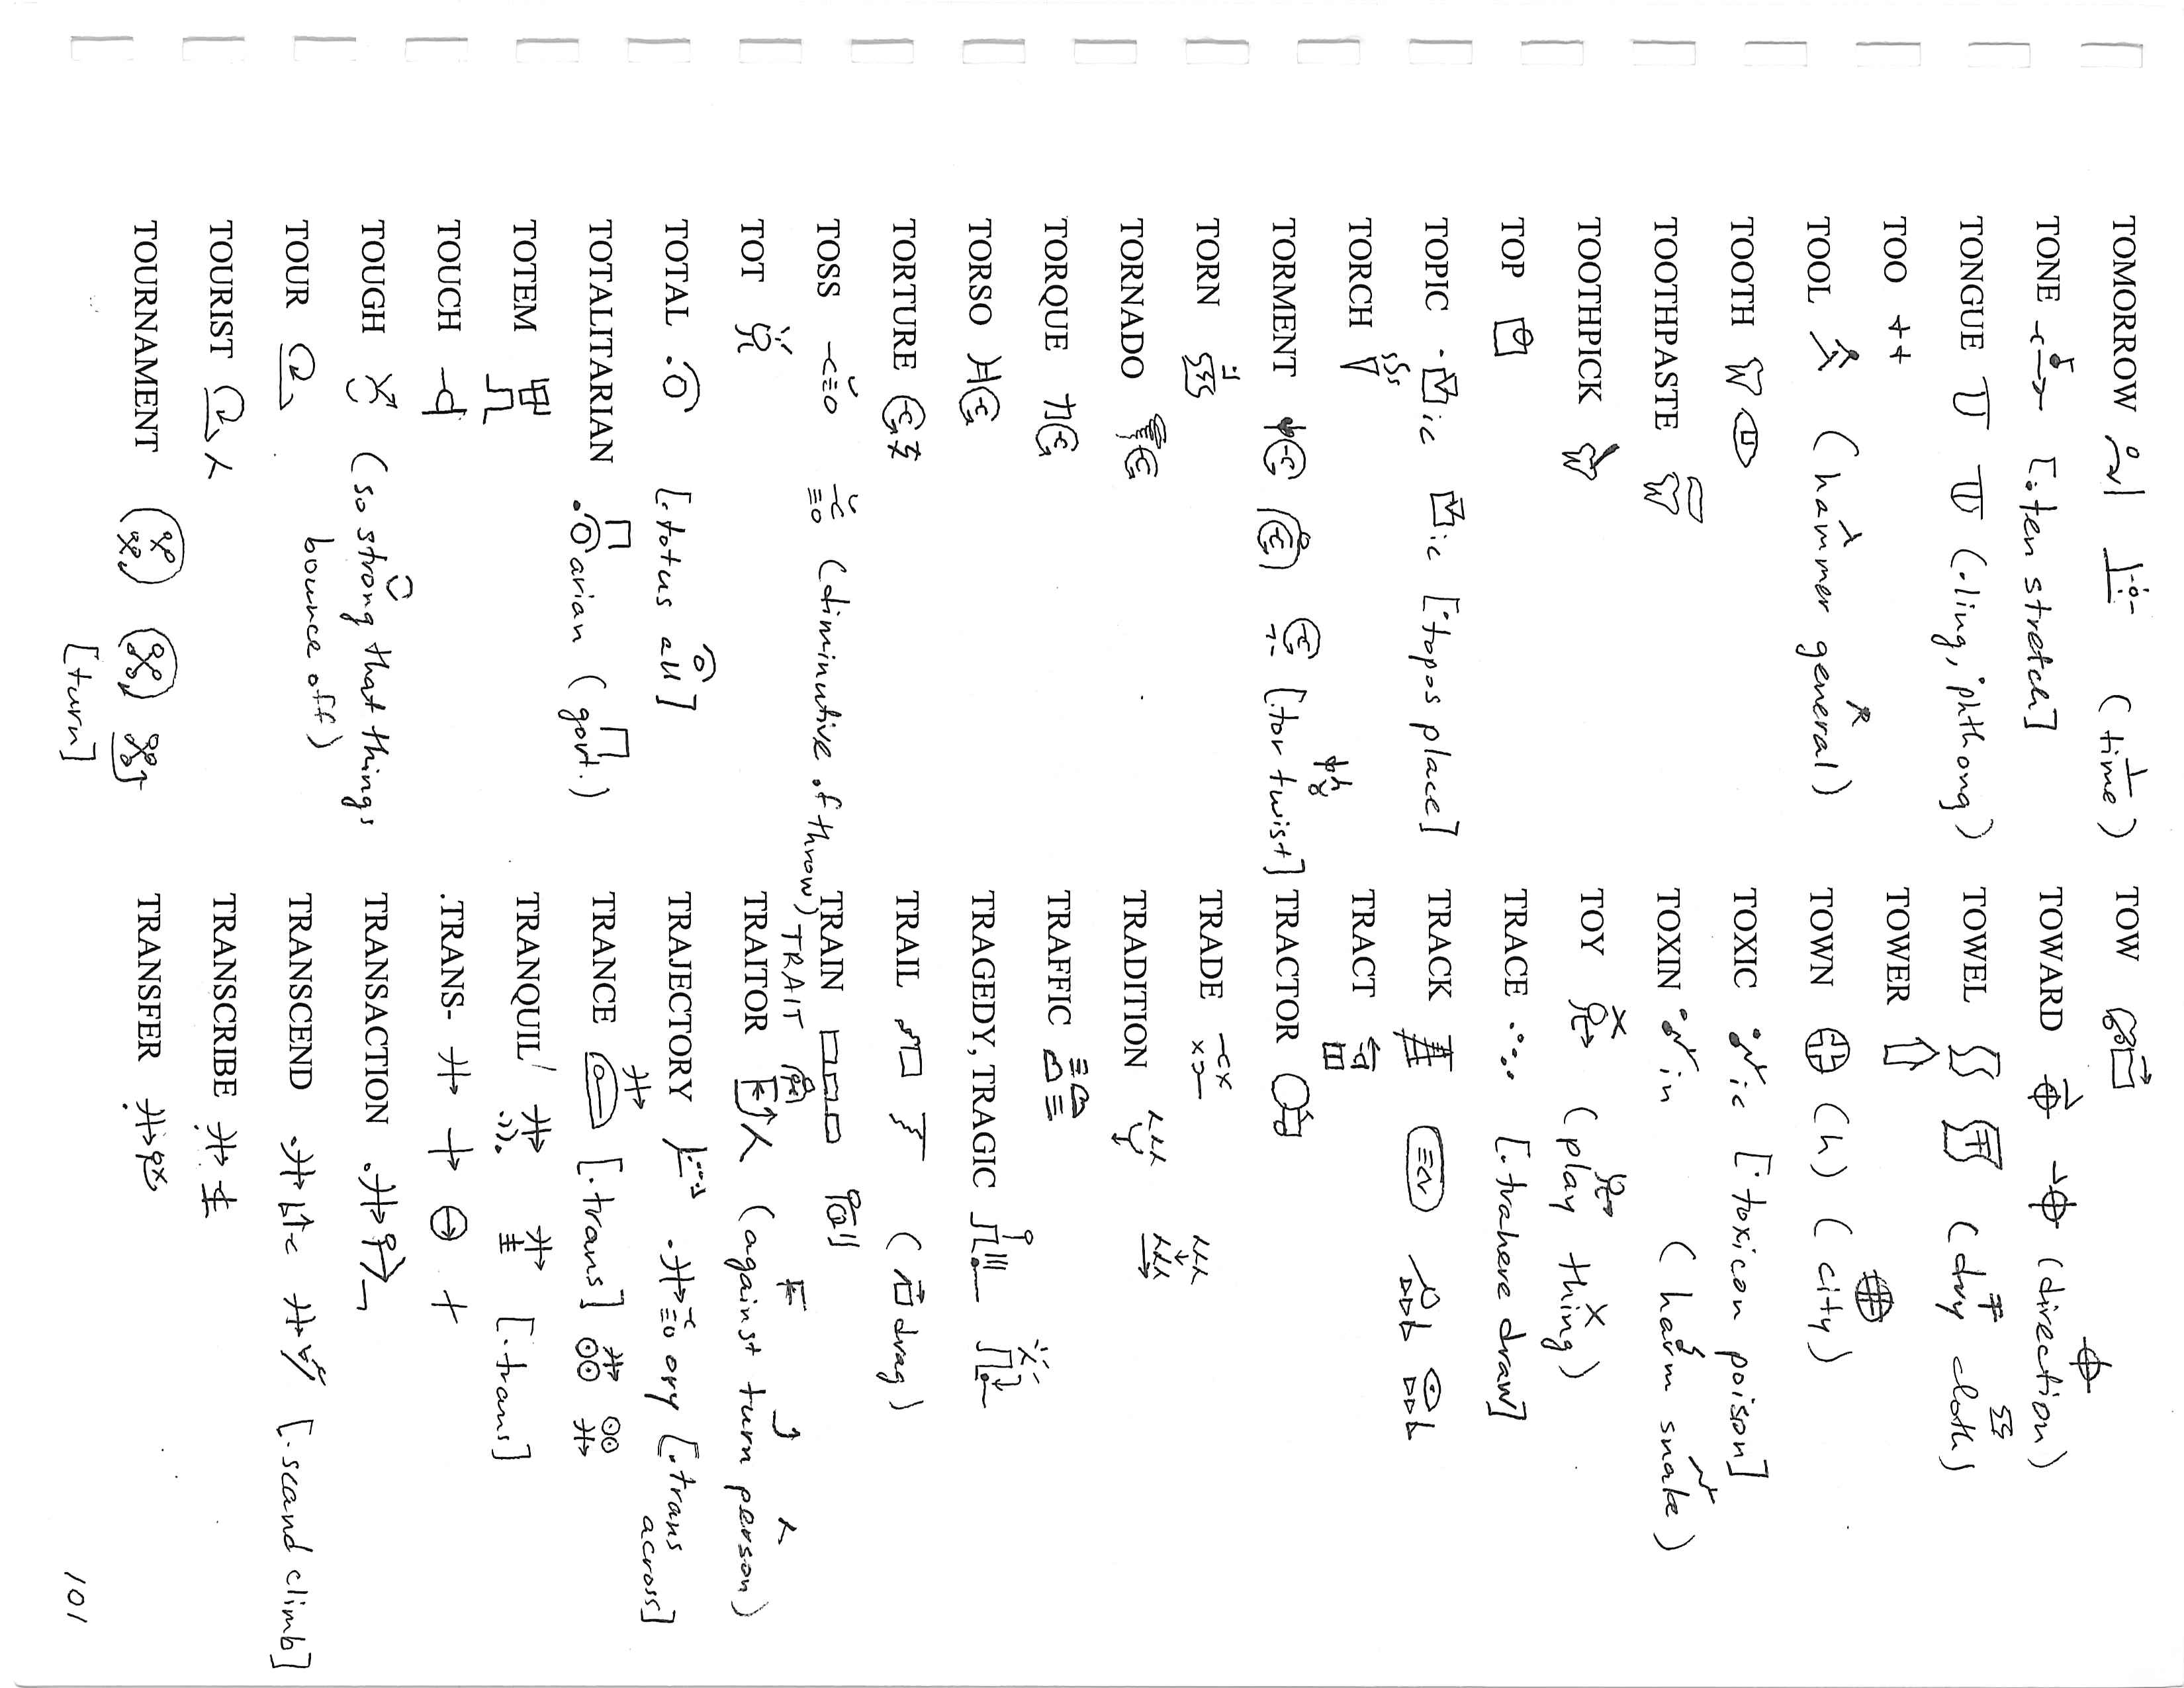 TOMORROW (time)
TONE [.ten stretch]
TONGUE (.ling, .phthong)
TOO
TOOL (hammer general)
TOOTH
TOOTHPASTE
TOOTHPICK
TOP
TOPIC ic ic [.topos place]
TORCH
TORMENT [.tor twist]
TORN
TORNADO
TORQUE
TORSO
TORTURE
TOSS (diminutive of throw)
TOT
TOTAL [.totus all]
TOTALITARIAN arian (govt.)
TOTEM
TOUCH
TOUGH (so strong that things
bounce off)
TOUR
TOURIST
TOURNAMENT
[turn]
TOW
TOWARD (direction)
TOWEL (dry cloth)
TOWER
TOWN (h) (city)
TOXIC ic [.toxicon poison]
TOXIN in (harm snake)
TOY (play thing)
TRACE [.trahere draw]
TRACK
TRACT
TRACTOR
TRADE
TRADITION
TRAFFIC
TRAGEDY, TRAGIC
TRAIL (drag)
TRAIN
TRAIT
TRAITOR (against turn person)
TRAJECTORY ory [.trans
across]
TRANCE [.trans]
TRANQUIL/ [.trans]
.TRANS-
TRANSACTION
TRANSCEND [.scand climb]
TRANSCRIBE
TRANSFER
101